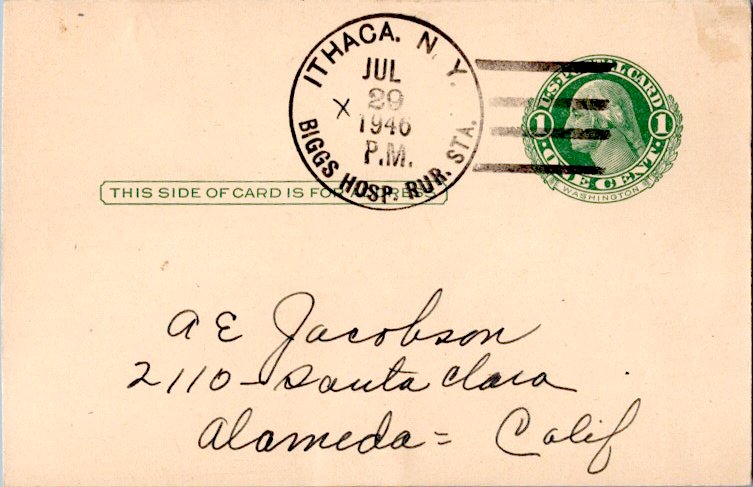 ITHACA. N. Y.
JUL
29
1946
P.M.
BIGGS HOSP. RUR. STA.
U.S. POSTAL CARD
1 1
ONE CENT
WASHINGTON
THIS SIDE OF CARD IS FOR ADDRESS
A E Jacobson
2110 - Santa Clara
Alameda = Calif